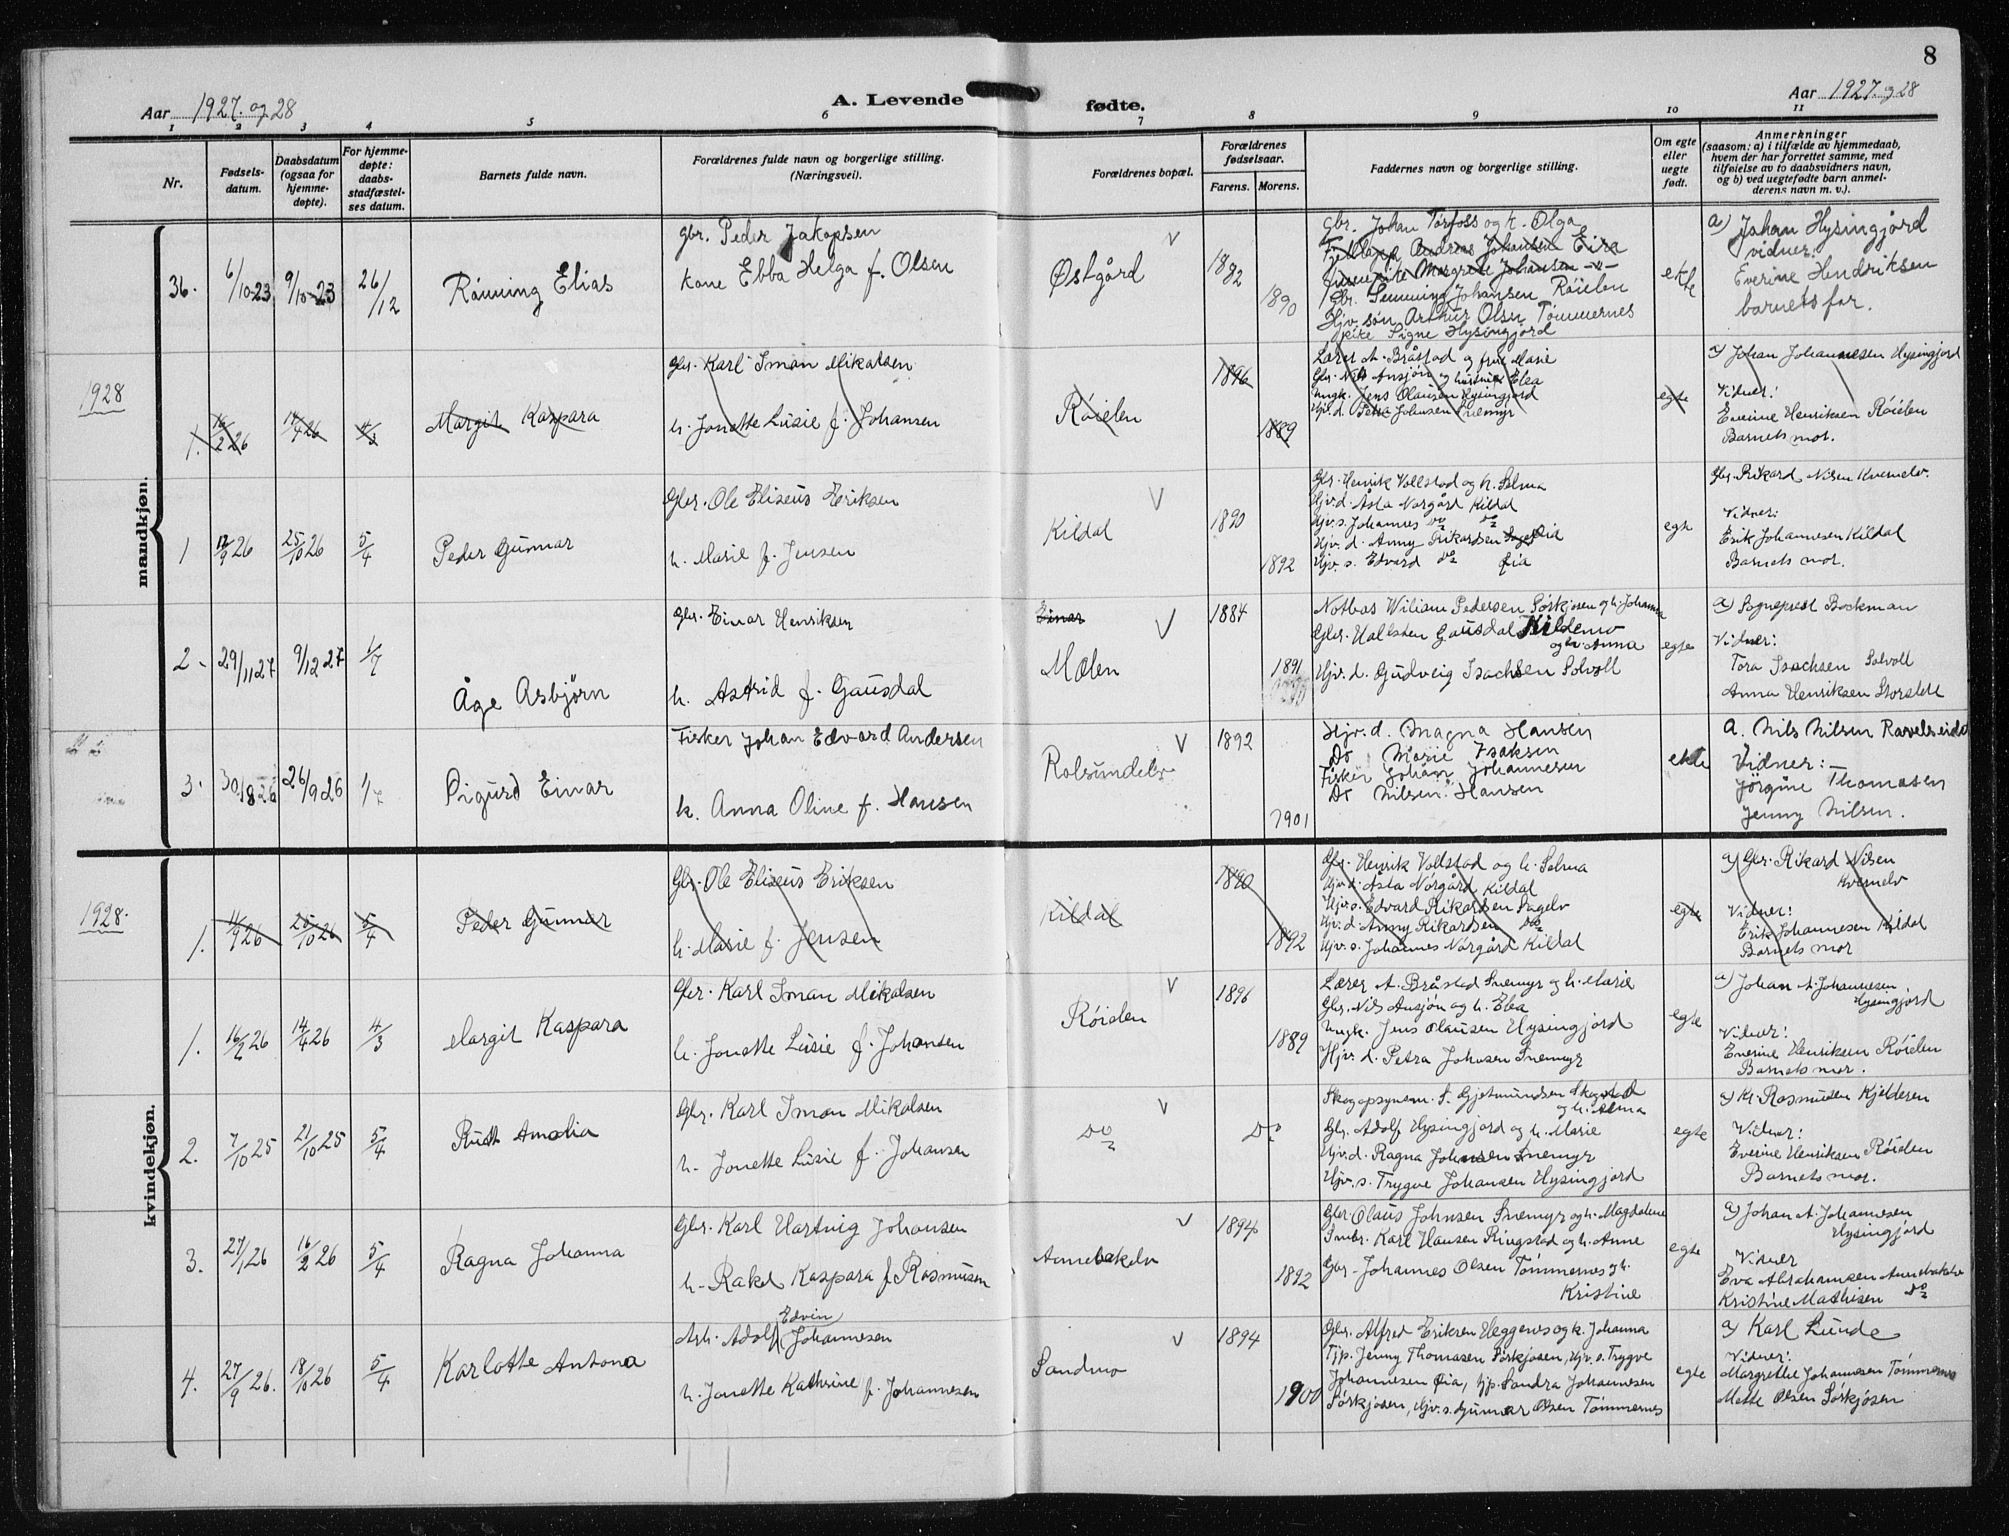 8
Aar 1927. og 28
A. Levende fødte.
Aar 1927. og 28
1 2 3 4 5 6 7 8 9 10 11
Nr.
Fødsels-
datum.
Daabsdatum
(ogsaa for
hjemme-
døpte).
For hjemme-
døpte:
daabs-
stadfæstel-
ses datum.
Barnets fulde navn.
Forældrenes fulde navn og borgerlige stilling.
(Næringsvei).
Forældrenes bopæl.
Forældrenes
fødselsaar.
Farens. Morens.
Faddernes navn og borgerlige stilling.
Om egte
eller
uegte
født.
Anmerkninger
(saasom: a) i tilfælde av hjemmedaab,
hvem der har forrettet samme, med
tilføielse av to daabsvidners navn,
og b) ved uegtefødte barn anmel-
derens navn m. v.).
mandkjøn.
36. 6/10-23 9/10-23 26/12
Rönning Elias
Gbr. Peder Jakopsen
kone Ebba Helga f. Olsen
Østgård
1892
1890
Gbr. Johan Torfoss og k. Olga
Fjellapp Andreas Johansen Eira
Margrete Johansen
Gbr. Johansen Röielen
Hjv. søn Arthur Olsen Tömmernes
Pike Signe Hysingjord
ekte
a) Johan Hysingjord
vidner:
Everine Hendriksen
barnets far.
1928
1. 16/2 26 14/4 26 4/3
Margit Kaspara
Gbr. Karl Iman Mikalsen
h. Jonette Lusie f. Johansen
Röielen
1896
1889
Lærer A. Bråstad og frue Marie
Gbr. Nils Ansjön og hustru Elea
Ungk. Jens Olausen Hysingjord
Hjv. d. Petra Johnsen Snemyr
egte
a) Johan Johannesen Hysingjord
Vidner:
Everine Henriksen Röielen
Barnets mor.
1 12/9 26 25/10 26 5/4
Peder Gunnar
Gbr. Ole Eliseus Eriksen
h. Marie f. Jensen
Kildal
1890
1892
Gbr. Henrik Vollstad og h. Selma
Hjv. d. Åsta Norgård Kildal
Hjv. s. Johannes do do
Hjv. d. Anny Rikardsen Øia
Hjv. s. Edvard do Øia
egte
Gbr. Rikard Nilsen Kvernelv.
Vidner:
Erik Johannesen Kildal
Barnets mor.
2. 29/11 27 9/12 27 1/7
Åge Asbjørn
Gbr. Einar Henriksen
h. Astrid f. Gausdal
Einar
Mælen
1884
1891
Notbas Wiliam Pedersen Sörkjosen og h. Johanna
Gbr. Hallsten Gausdal Kildemo
og h. Anna
Hjv. d. Gudveig Isachsen Solvoll
egte
a) Sogneprest Bockman
Vidner:
Tora Isachsen Solvoll
Anna Henriksen Storslett
3. 30/8 26 26/9 26 1/7
Sigurd Einar
Fisker Johan Edvard Andersen
k. Anna Oline f. Hansen
Rolsundelv
1892
1901
Hjv. d. Magna Hansen
Do Marie Isaksen
Fisker Johan Johannesen
Do Nilsen Hansen
ekte
A. Nils Nilsen Ravelseidet
Vidner:
Jørgine Thomasen
Jenny Nilsen.
kvindekjøn.
1928.
1. 11/9 26 25/10 26 5/4
Peder Gunnar
Gbr. Ole Eliseus Eriksen
h. Marie f. Jensen
Kildal
1890
1892
Gbr. Henrik Vollstad og h. Selma
Hjv. d. Åsta Norgård Kildal
Hjv. s. Edvard Rikardsen Sagelv
Hjv. d. Anny Rikardsen do
Hjv. s. Johannes Norgård Kildal
egte
a) Gbr. Rikard Nilsen
Kvernelv
Vidner:
Erik Johannesen Kildal
Barnets mor
1. 16/2 26 14/4 26 4/3
Margit Kaspara
Gbr. Karl Iman Mikalsen
h. Jonette Lusie f. Johansen
Röielen
1896
1889
Lærer A. Bråstad Snemyr og h. Marie
Gbr. Nils Ansjön og h. Elea
Ungk. Jens Olausen Hysingjord
Hjv. d. Petra Johnsen Snemyr
egte
a) Johan A. Johannesen
Hysingjord
Vidner:
Everine Henriksen Röielen
Barnets mor.
2. 7/10 25 21/10 25 5/4
Rudt Amalia
Gbr. Karl Iman Mikalsen
h. Jonette Lusie f. Johansen
Do
Do
Skogopsynsm. S. Gjetmundsen Skogstad
og h. Alma
Gbr. Adolf Hysingjord og h. Marie
Hjv. d. Ragna Johansen Snemyr
Hjv. s. Trygve Johansen Hysingjord
egte
a) Kr. Rasmusen Kjelderen
Vidner:
Everine Henriksen Röielen
Barnets mor.
3. 27/1 26 16/2 26 5/4
Ragna Johanna
Gbr. Karl Hartvig Johansen
h. Rakel Kaspara f. Rasmusen
Annebakelv
1894
1892
Gbr. Olaus Johnsen Snemyr og h. Magdalene
Småbr. Karl Hansen Ringstad og h. Anne
Gbr. Johannes Olsen Tömmernes og h.
Kristine
egte
a) Johan A. Johannesen
Hysingjord
Vidner
Eva Abrahamsen Annebakelv
Kristine Mathisen do
4. 27/9 26. 18/10 26 5/4
Karlotte Antona
Arb. Adolf Edvin Johannesen
h. Jonette Kathrine f. Johannesen
Sandmo
1894
1900
Gbr. Alfred Eriksen Heggenes og h. Johanna
Tjp. Jenny Thomasen Sörkjosen, Hjv. s. Trygve
Johannesen Øia, tjp. Sandra Johannesen
Sörkjosen, Hjv. s. Gunnar Olsen Tömmernes
egte
a) Karl Lunde
Vidner:
Margrethe Johannesen Tömmernes
Mette Olsen Sörkjosen